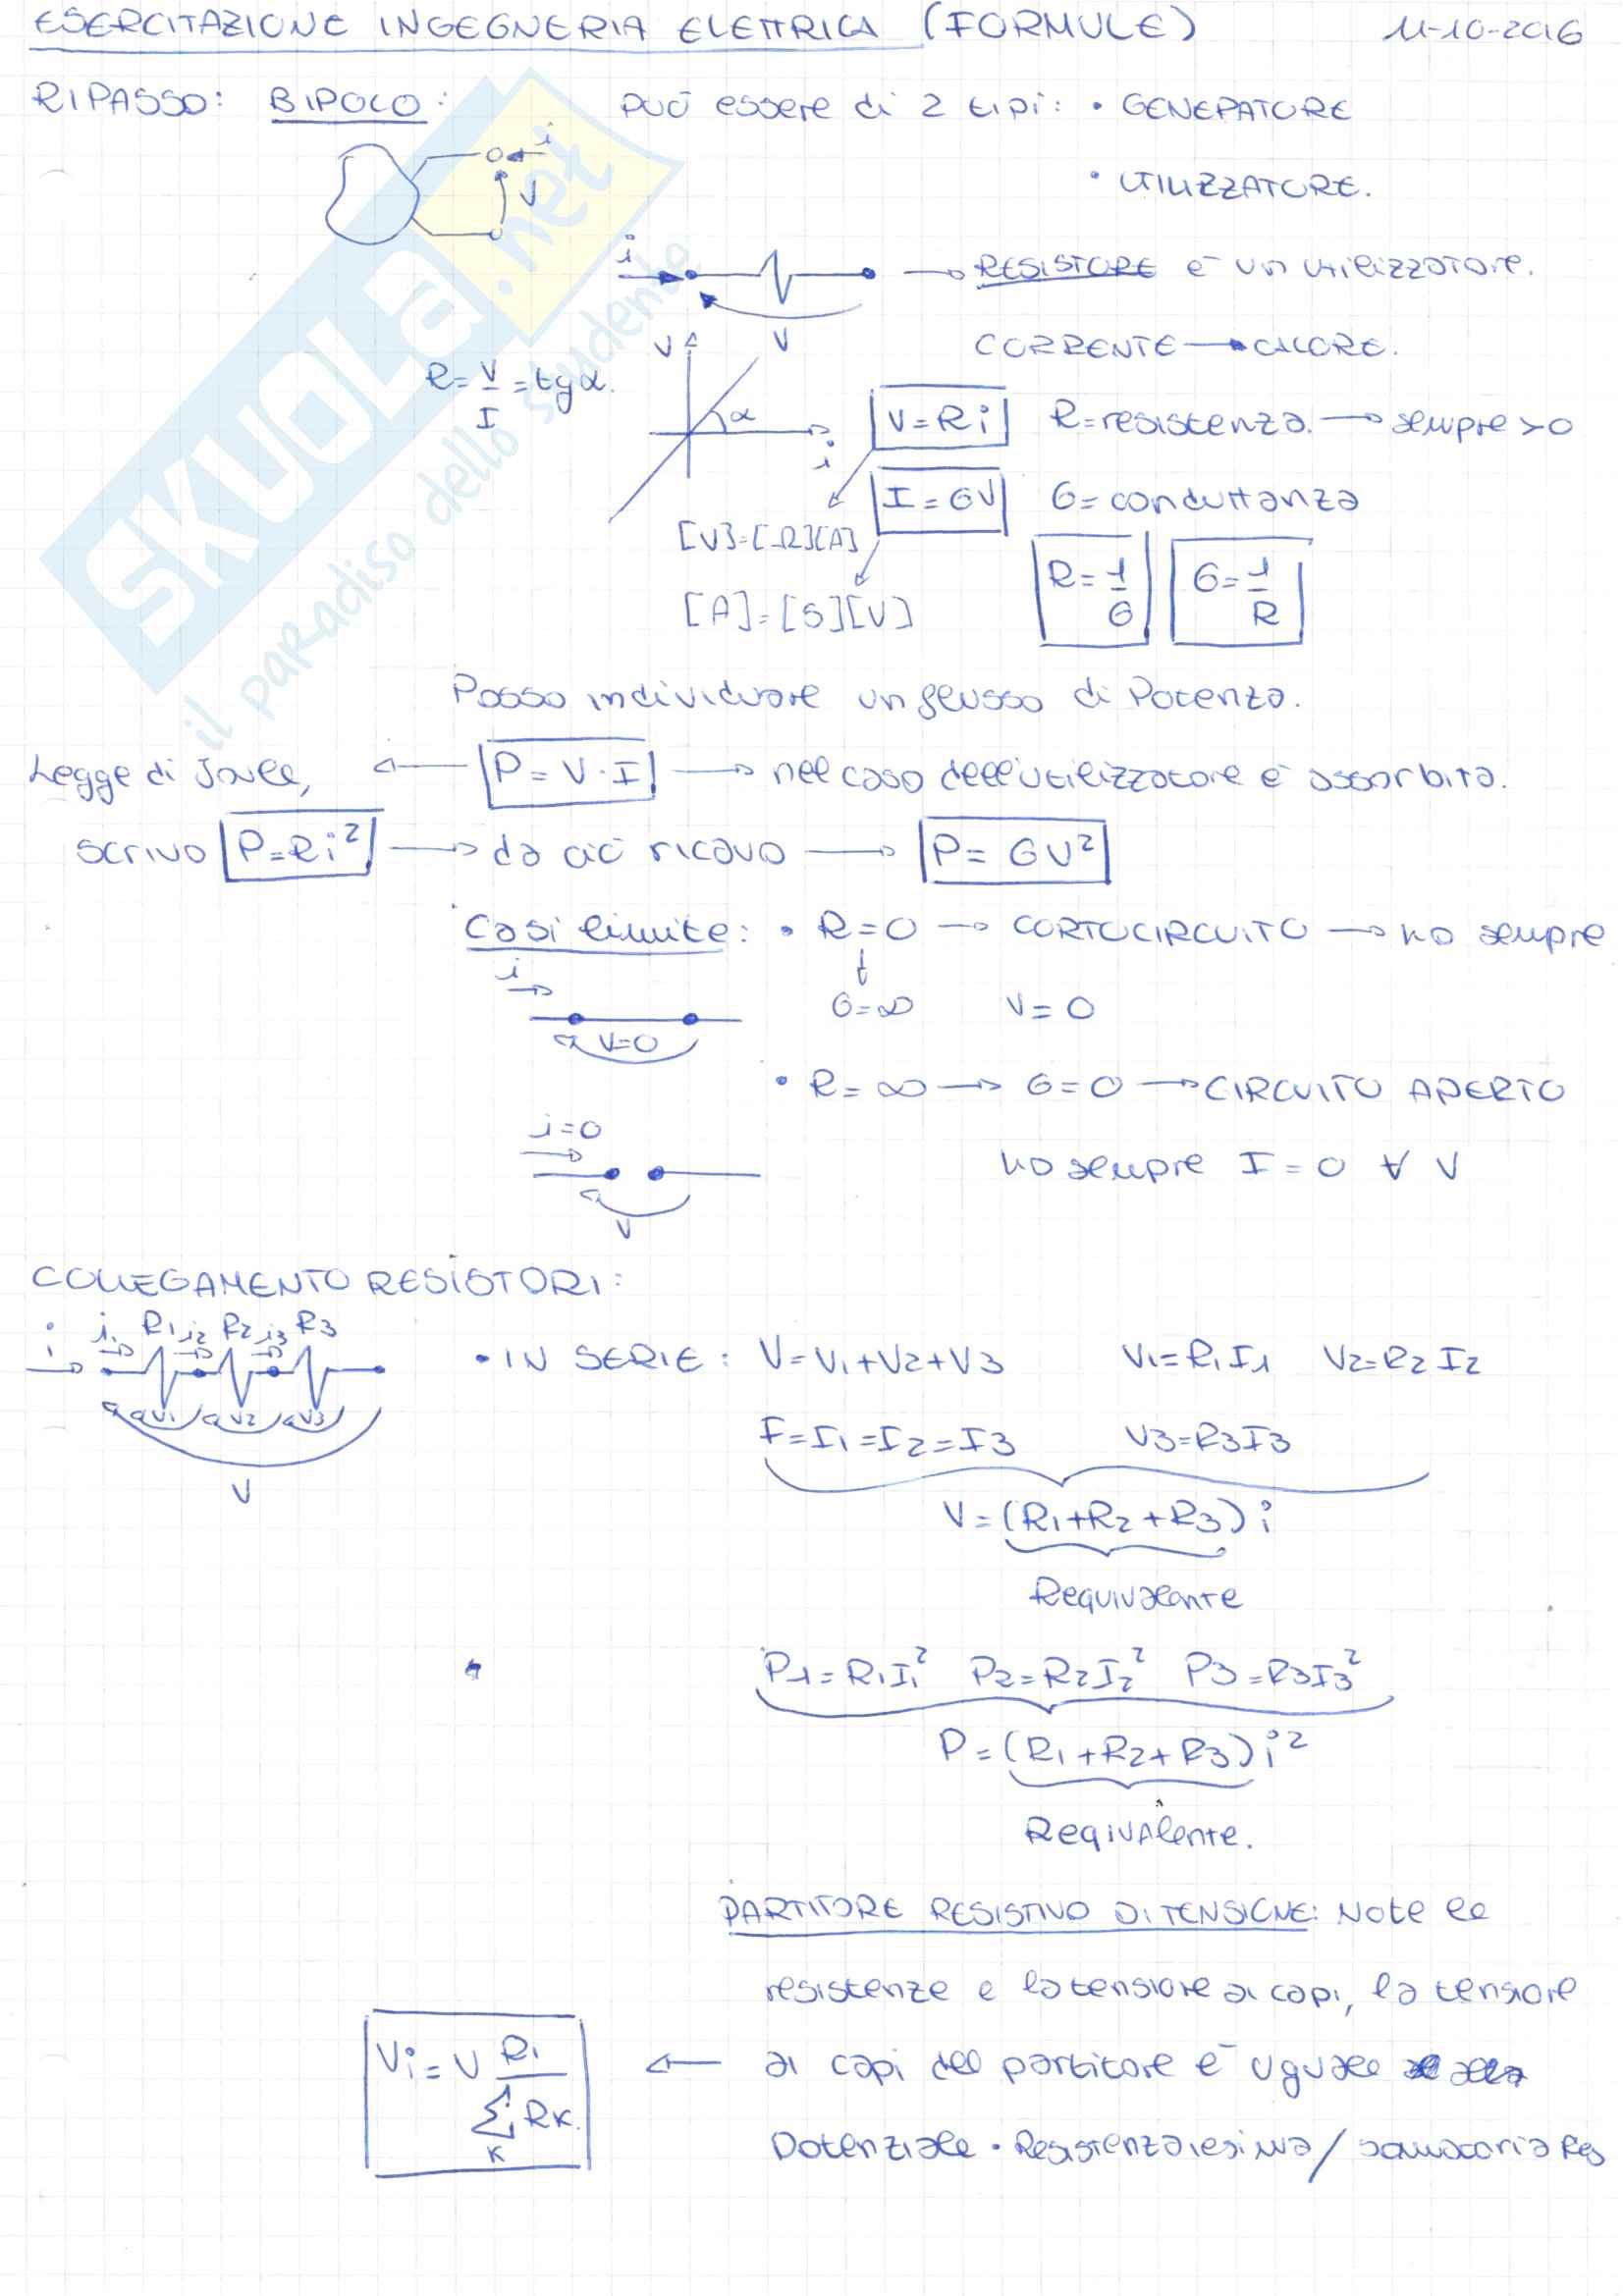 ESERCITAZIONE INGEGNERIA ELETTRICA (FORMULE) 11-10-2016
RIPASSO: BIPOLO: PUÒ essere di 2 tipi: • GENERATORE
i
V
• UTILIZZATORE.
i
V
→ RESISTORE è un utilizzatore.
CORRENTE → CALORE.
R = V/I = tgα.
V
α
i
V = Ri R = resistenza. → sempre > 0
I = GV G = conduttanza
[V] = [Ω][A]
[A] = [S][V]
R = 1/G G = 1/R
Posso individuare un flusso di Potenza.
Legge di Joule, ← P = V · I → nel caso dell'utilizzatore è assorbita.
scrivo P = Ri² → da ciò ricavo → P = GV²
Casi limite: • R = 0 → CORTOCIRCUITO → ho sempre
i
G = ∞ V = 0
V=0
• R = ∞ → G = 0 → CIRCUITO APERTO
i=0
ho sempre I = 0 ∀ V
V
COLLEGAMENTO RESISTORI:
i i1 R1 i2 R2 i3 R3
• IN SERIE: V = V1 + V2 + V3 V1 = R1I1 V2 = R2I2
V1 V2 V3
I = I1 = I2 = I3 V3 = R3I3
V
V = (R1 + R2 + R3) i
Requivalente
P1 = R1I1² P2 = R2I2² P3 = R3I3²
P = (R1 + R2 + R3) i²
Reqivalente.
PARTITORE RESISTIVO DI TENSIONE: Note le
resistenze e la tensione ai capi, la tensione
Vi = V Ri / ∑K RK. ← ai capi del partitore è uguale alla
Potenziale · Resistenza iesima / sommatoria Res
SKUOLA.net
il paradiso dello studente